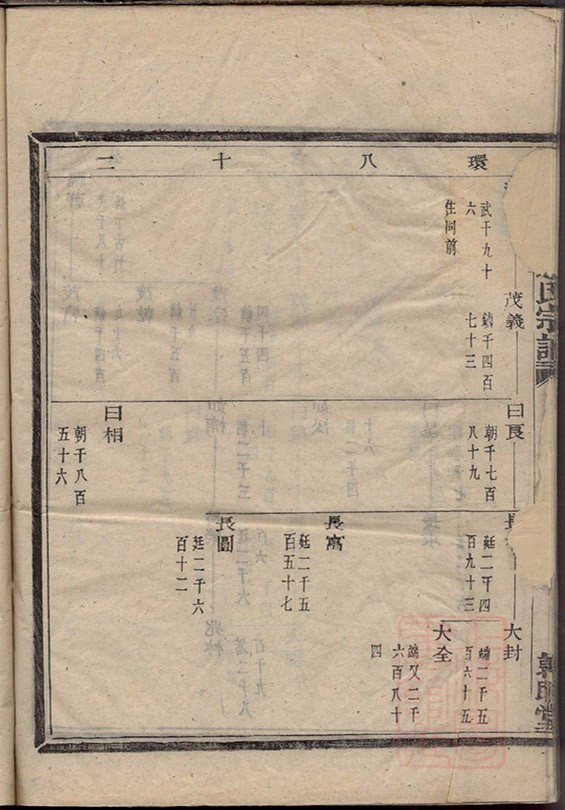 環八十二
武千九十
六
住同前
茂義
鎮千四百
七十三
曰良
朝千七百
八十九
曰相
朝千八百
五十六
長
廷二千四
百九十三
長富
廷二千五
百五十七
長圓
廷二千六
百十二
大封
端二千五
百六十五
大全
端又二千
六百八十
四
氏宗譜
堂